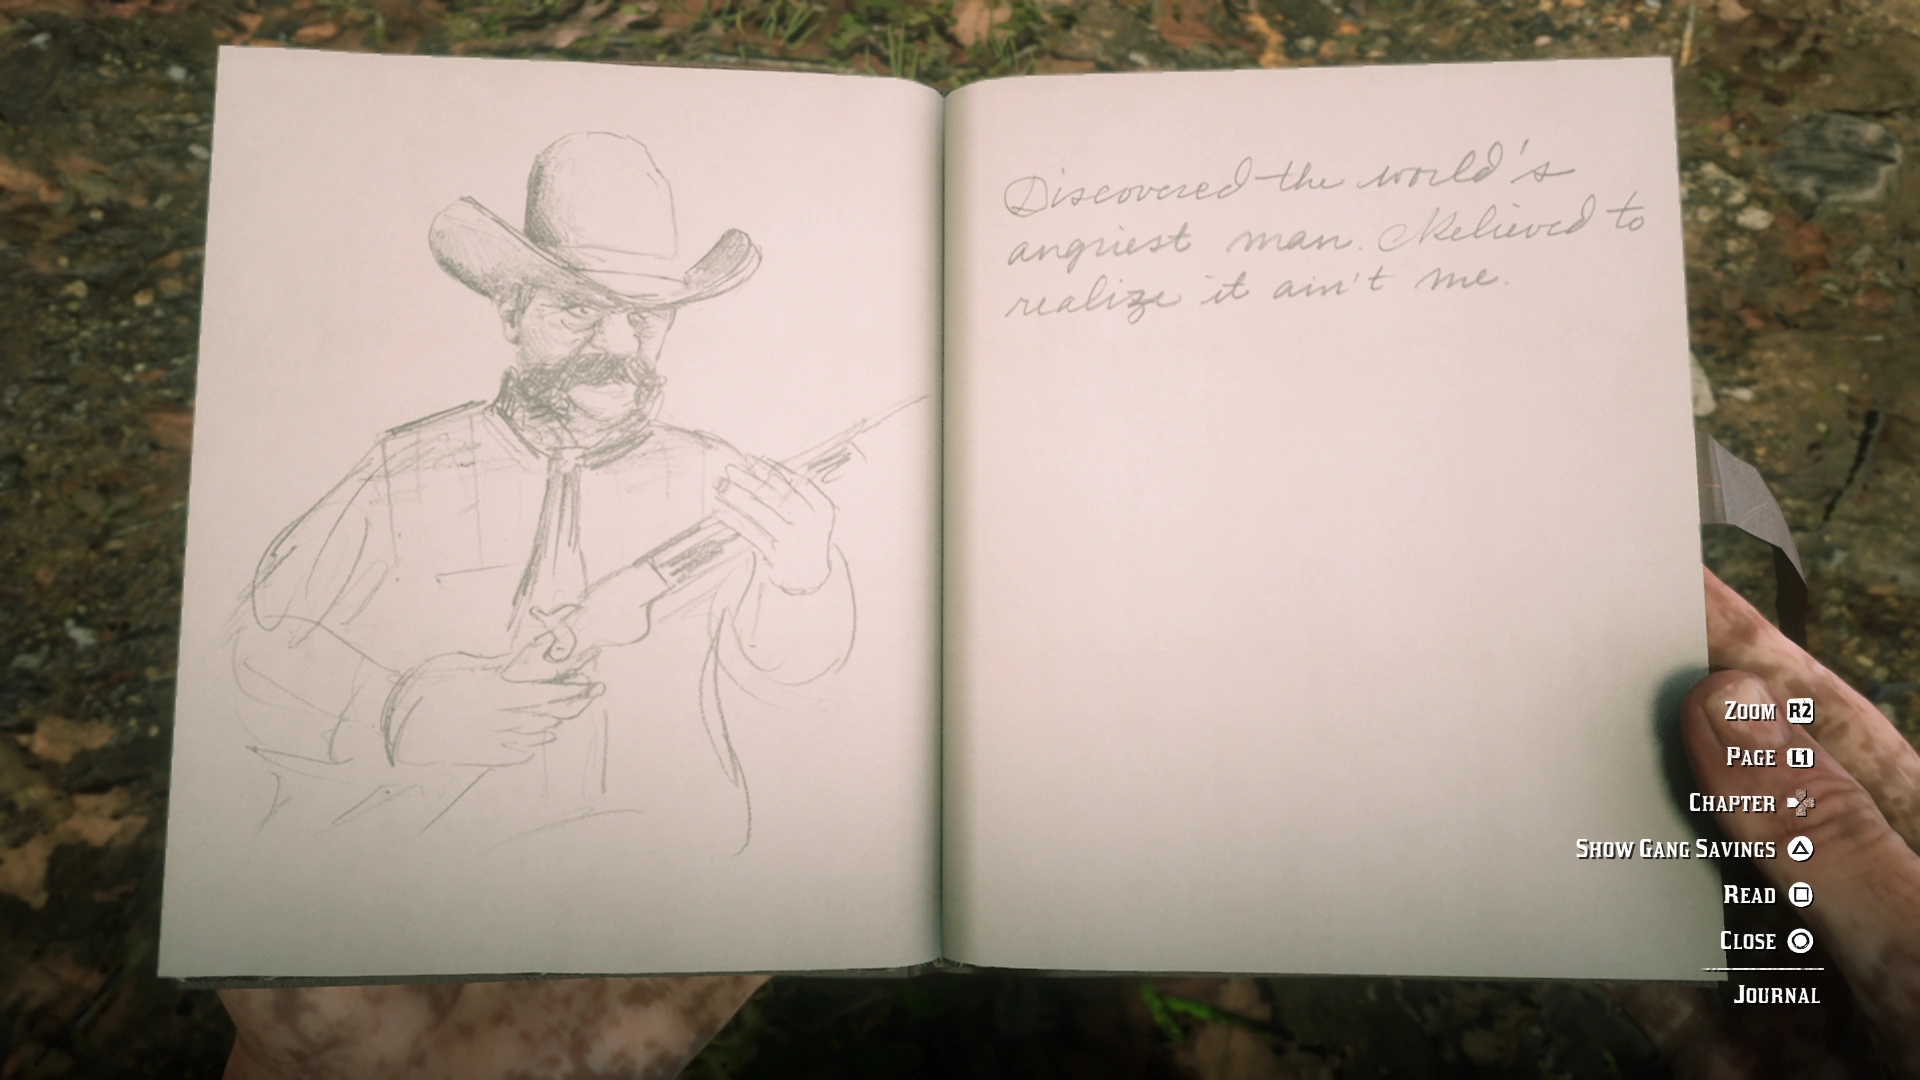 Discovered the world's
angriest man. Relieved to
realize it ain't me.
Zoom R2
Page L1
Chapter
Show Gang Savings
Read
Close
Journal